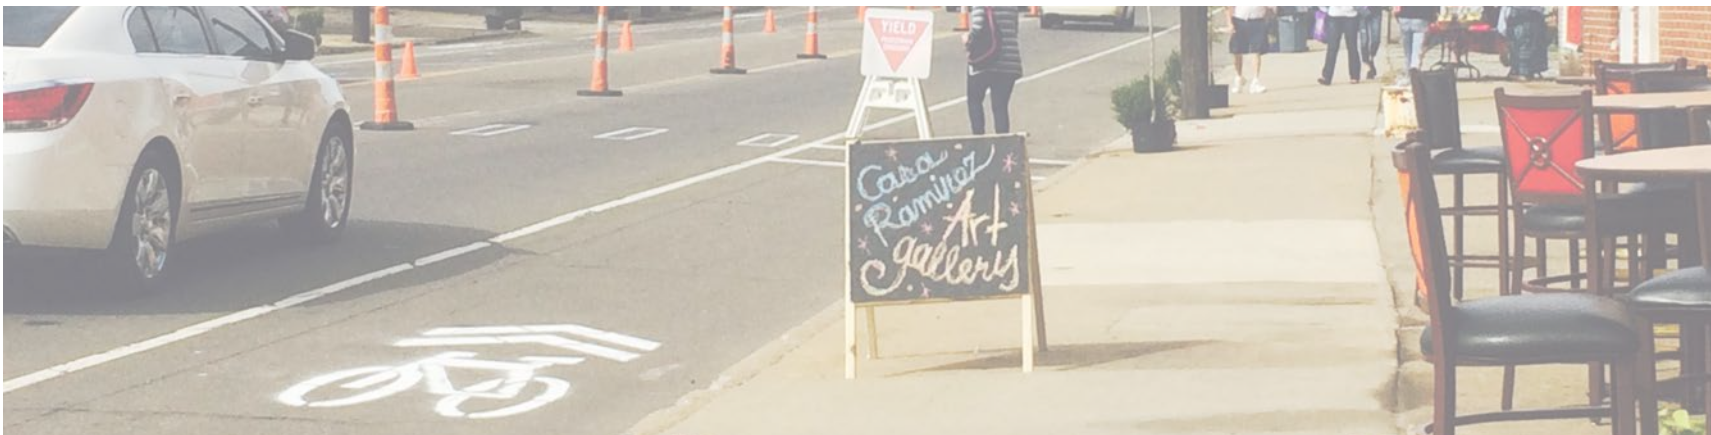 YIELD
Casa
Ramirez
Art
gallery